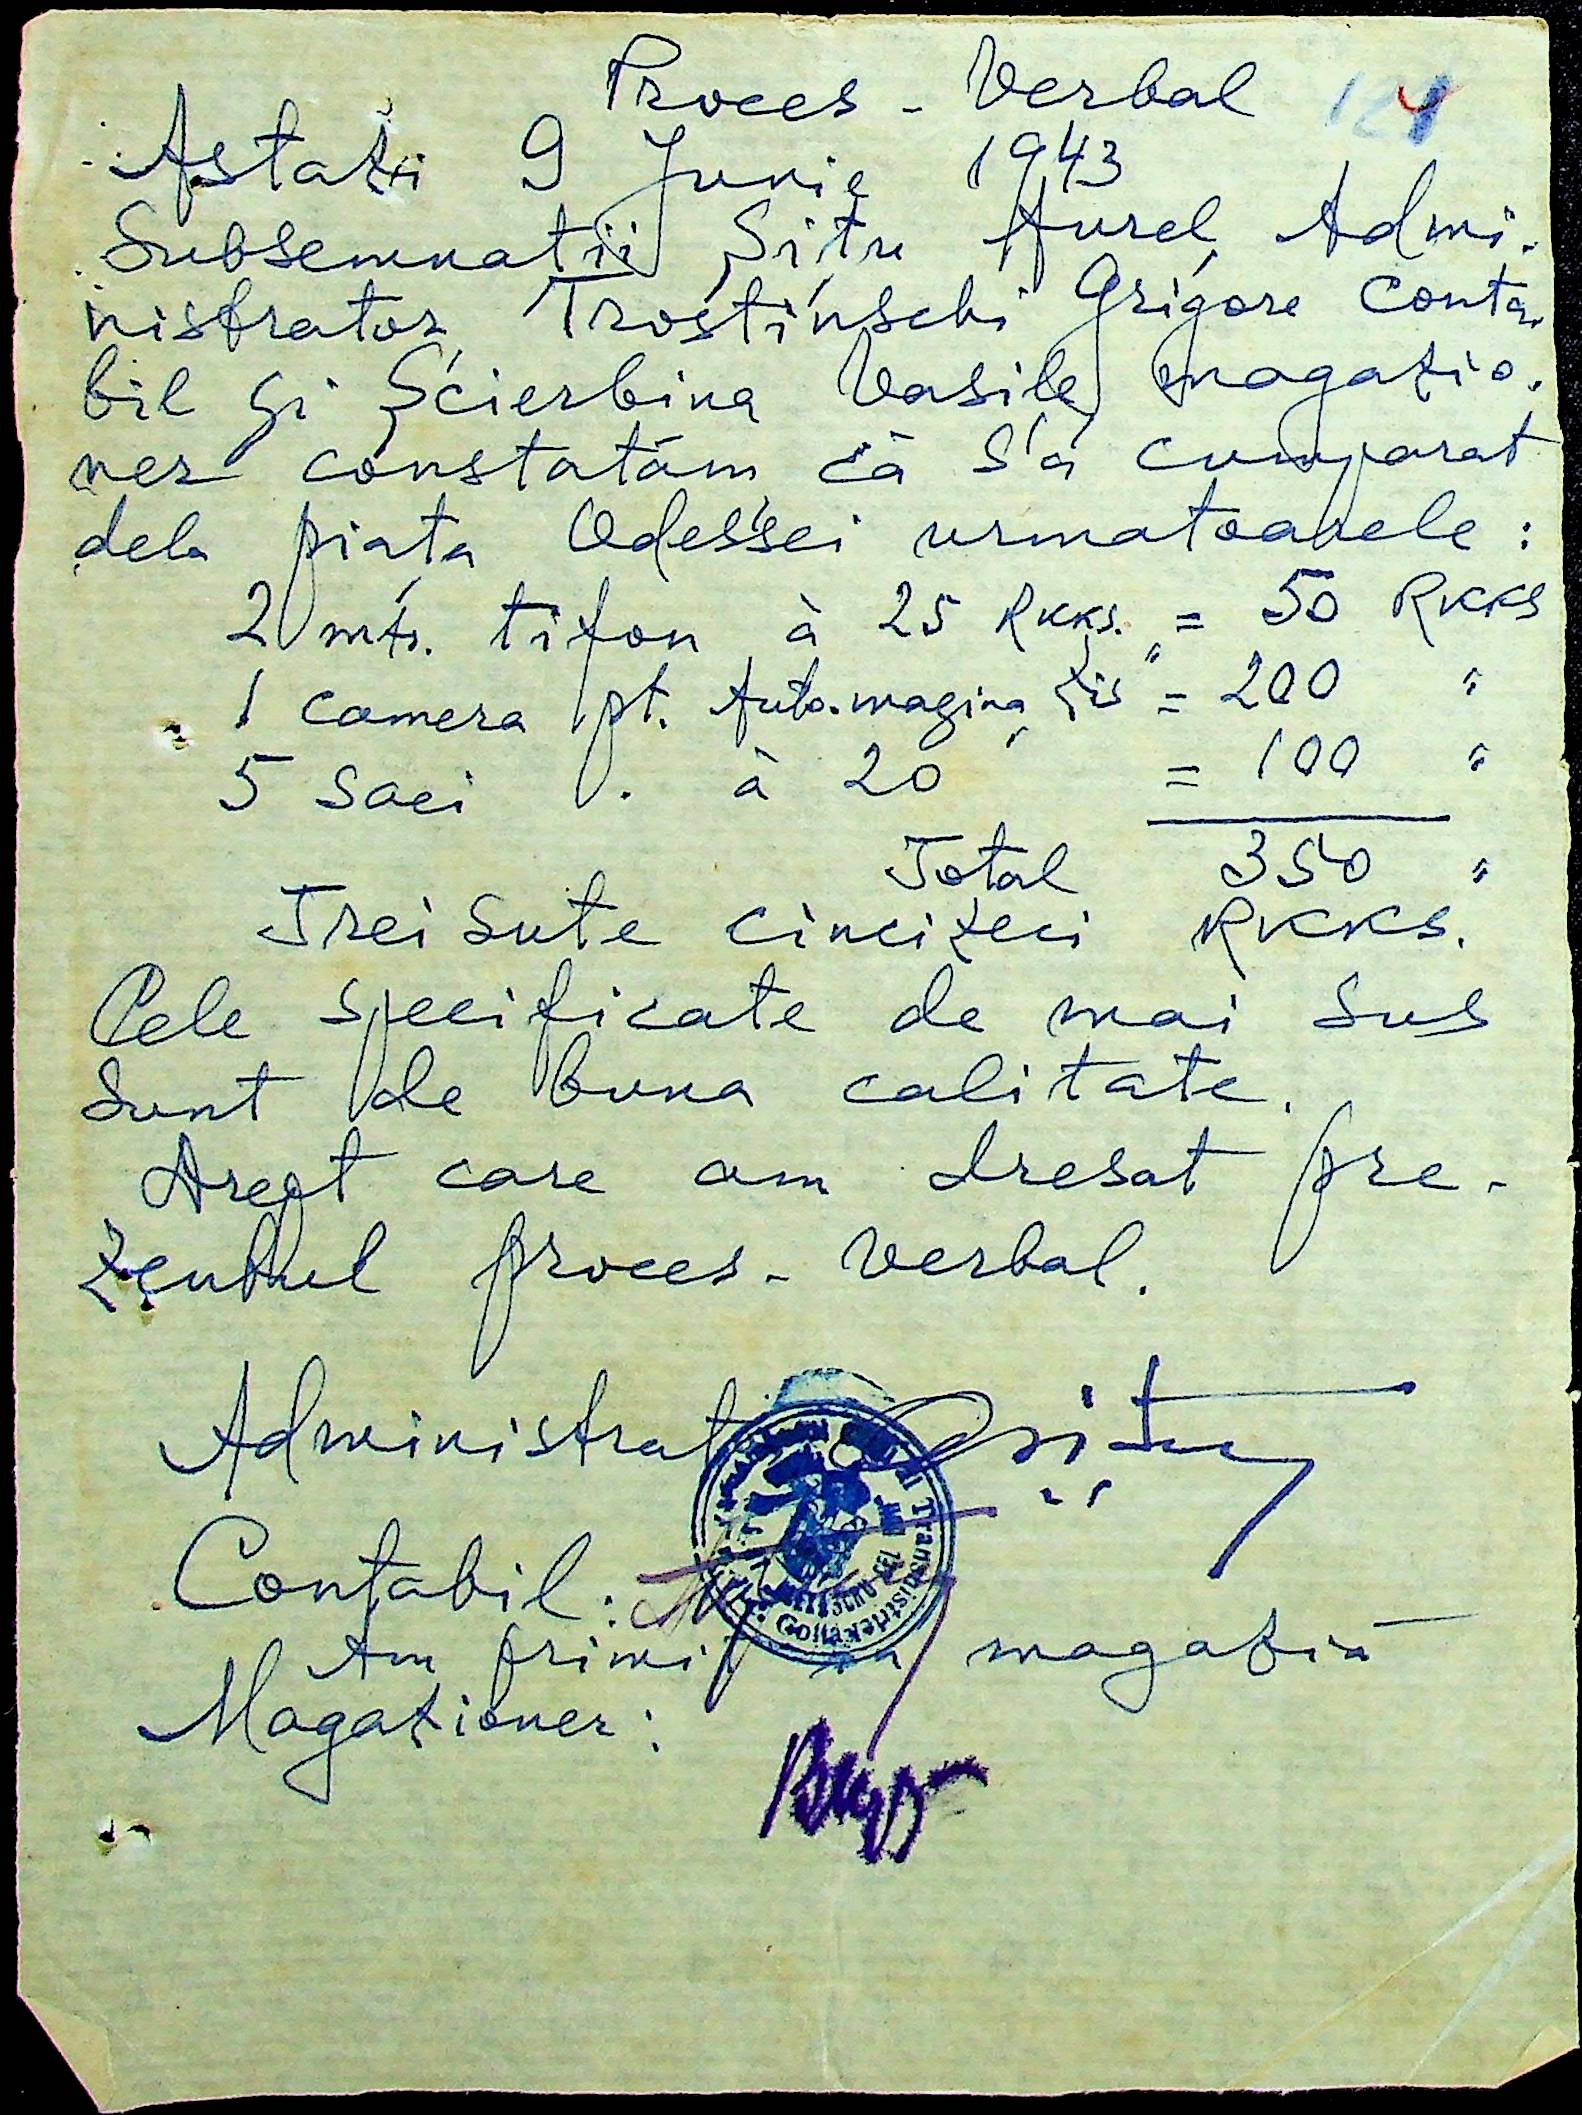 Proces - Verbal 124
Astazi 9 Junie 1943
Subsemnatii Șitu Aurel, Admi-
nistrator, Trostinschi Grigore Conta-
bil și Șcierbina Vasile magazio-
ner constatăm că s'a cumparat
dela piața Odessei urmatoarele:
2 mtr. tifon à 25 RKKS. = 50 RKKS
1 camera pt. Auto.mașina Zis " = 200 "
5 saci . à 20 = 100 "
Total 350 "
Trei sute cincizeci RKKS.
Cele specificate de mai sus
sunt de buna calitate.
Drept care am dresat pre-
zentul proces-verbal.
Administrat Șitu
Contabil:
Am primit în magazia
Magazioner: